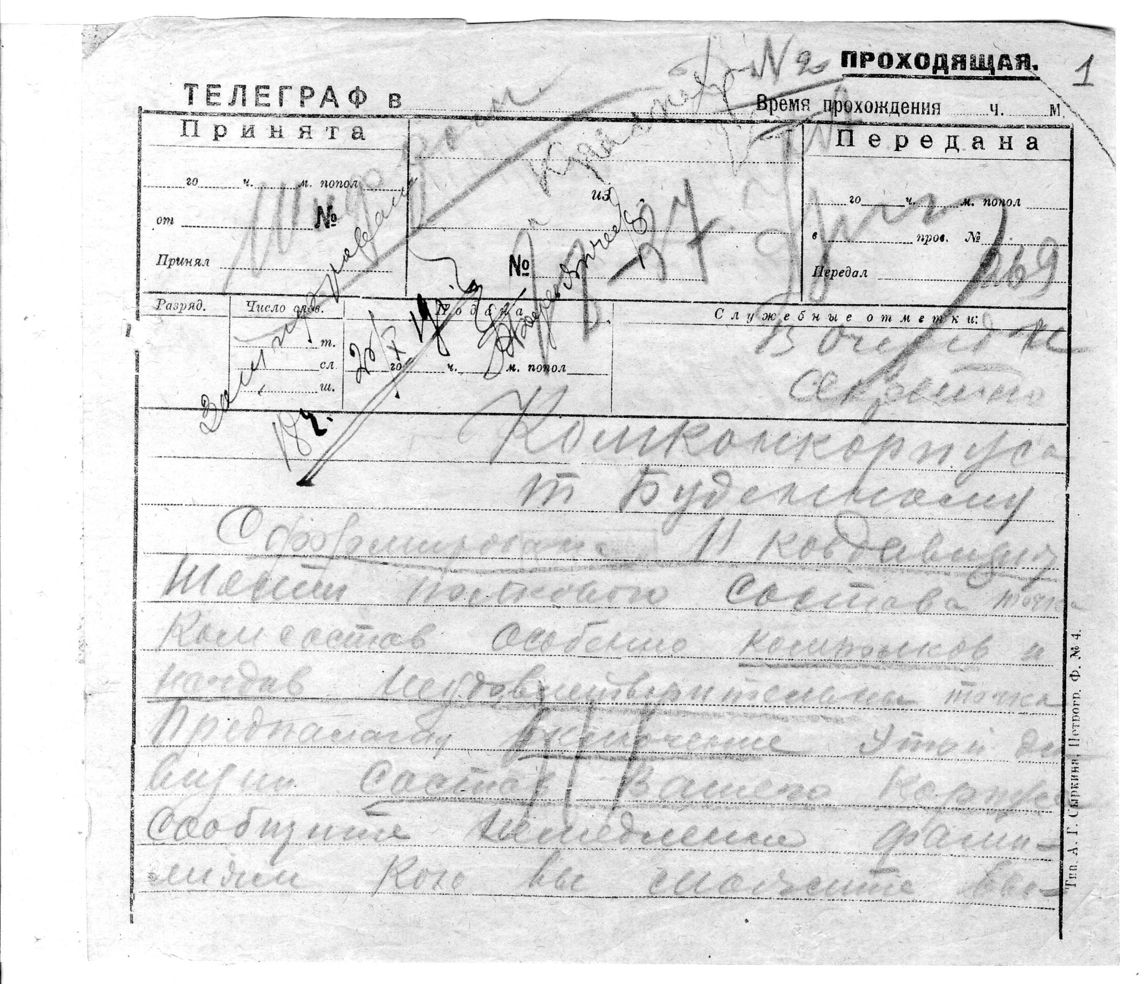 ПРОХОДЯЩАЯ.
1
№ 2
ТЕЛЕГРАФ в
Время прохождения ч. М.
Принята
Передана
го ч. м. попол
от №
Принял
из
№
37.
го ч. м. попол
в пров. №
Передал
269
Разряд.
Число слов.
т.
сл
ш.
Подана
го ч. м. попол
Служебные отметки:
Шифром
Зашифрован
25/X 19 г.
18 ч.
В очередь
Секретно
Комконкорпуса
т Буденному
Сформирована 11 кавдивизия
шести полкового состава точка
Комсостав особенно комполков и
начдив неудовлетворительны точка
Предполагаю включение этой ди
визии состав Вашего Корпуса
сообщите немедленно фами-
лиями кого вы сможете вве-
Тип. А. Г. Сыркина, Петрогр. Ф. № 4.